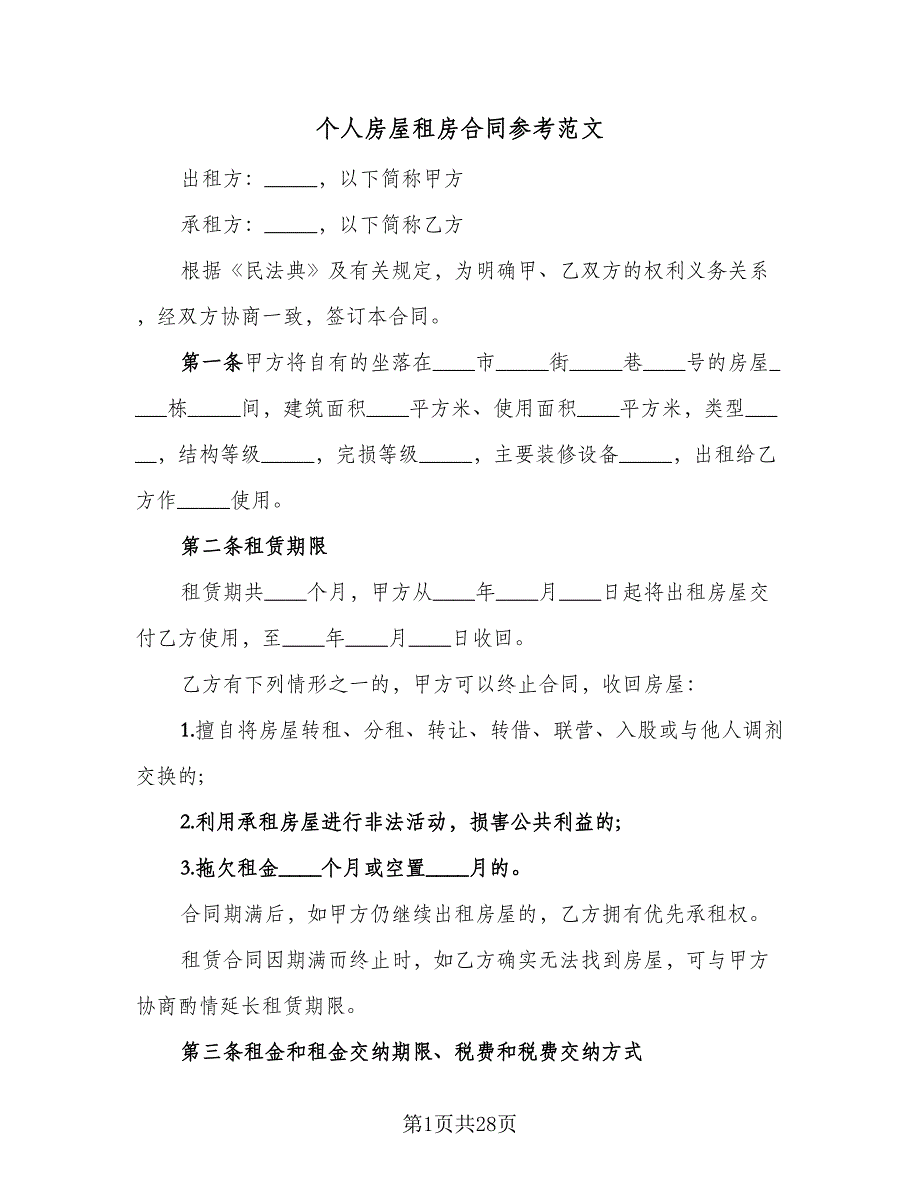 个人房屋租房合同参考范文
出租方：_____，以下简称甲方
承租方：_____，以下简称乙方
根据《民法典》及有关规定，为明确甲、乙双方的权利义务关系
，经双方协商一致，签订本合同。
第一条甲方将自有的坐落在____市_____街_____巷____号的房屋_
___栋_____间，建筑面积____平方米、使用面积____平方米，类型___
__，结构等级_____，完损等级_____，主要装修设备_____，出租给乙
方作_____使用。
第二条租赁期限
租赁期共____个月，甲方从____年____月____日起将出租房屋交
付乙方使用，至____年____月____日收回。
乙方有下列情形之一的，甲方可以终止合同，收回房屋：
1.擅自将房屋转租、分租、转让、转借、联营、入股或与他人调剂
交换的;
2.利用承租房屋进行非法活动，损害公共利益的;
3.拖欠租金____个月或空置____月的。
合同期满后，如甲方仍继续出租房屋的，乙方拥有优先承租权。
租赁合同因期满而终止时，如乙方确实无法找到房屋，可与甲方
协商酌情延长租赁期限。
第三条租金和租金交纳期限、税费和税费交纳方式
第1页共28页